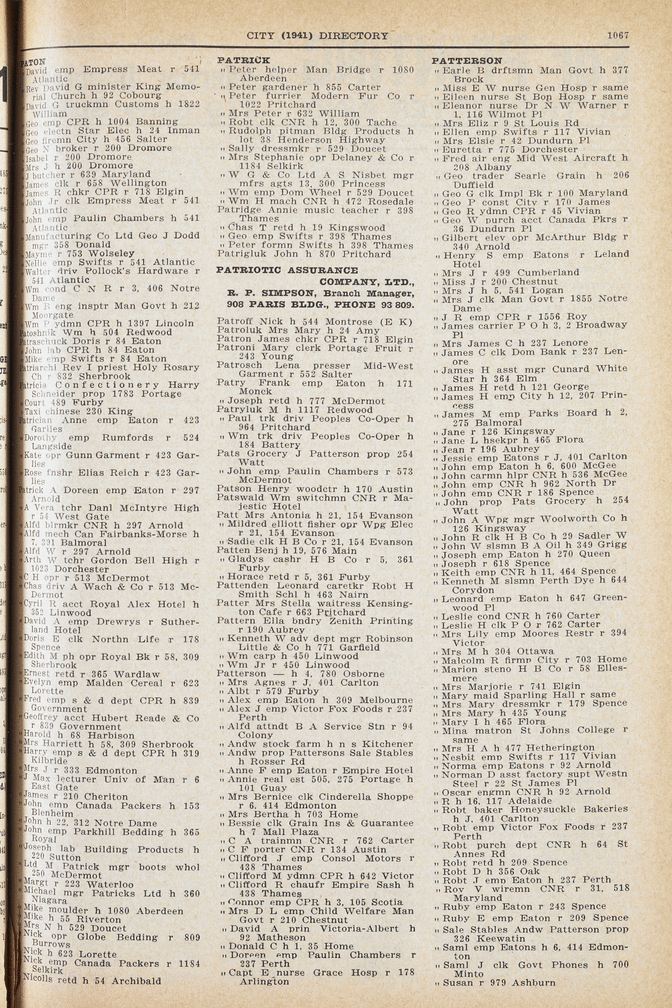 CITY (1941) DIRECTORY 1067
PATON
David emp Empress Meat r 541
Atlantic
Rev David G minister King Memo-
rial Church h 92 Cobourg
David G truckmn Customs h 1822
William
Geo emp CPR h 1004 Banning
Geo electn Star Elec h 24 Inman
Geo firemn City h 456 Salter
Geo N broker r 200 Dromore
Isabel r 200 Dromore
Mrs J h 200 Dromore
J butcher r 639 Maryland
James clk r 658 Wellington
James R chkr CPR r 718 Elgin
John Jr clk Empress Meat r 541
Atlantic
John emp Paulin Chambers h 541
Atlantic
Manufacturing Co Ltd Geo J Dodd
mgr 358 Donald
Mayme r 753 Wolseley
Nellie emp Swifts r 541 Atlantic
Walter driv Pollock's Hardware r
541 Atlantic
Wm cond C N R r 3, 406 Notre
Dame
Wm B eng insptr Man Govt h 212
Moorgate
Wm P ydmn CPR h 1397 Lincoln
Patoshnik Wm h 504 Redwood
Patraschuk Doris r 84 Eaton
John lab CPR h 84 Eaton
Mike emp Swifts r 84 Eaton
Patriarchi Rev I priest Holy Rosary
Ch r 832 Sherbrook
Patricia Confectionery Harry
Schneider prop 1783 Portage
Court 489 Furby
Taxi chinese 230 King
Patrician Anne emp Eaton r 423
Garlies
Dorothy emp Rumfords r 524
Langside
Kate opr Gunn Garment r 423 Gar-
lies
Rose fnshr Elias Reich r 423 Gar-
lies
Patrick A Doreen emp Eaton r 297
Arnold
A Vera tchr Danl McIntyre High
r 54 West Gate
Alfd blrmkr CNR h 297 Arnold
Alfd mech Can Fairbanks-Morse h
7, 391 Balmoral
Alfd W r 297 Arnold
Arth W tchr Gordon Bell High r
1023 Dorchester
C H opr r 513 McDermot
Chas driv A Wach & Co r 513 Mc-
Dermot
Cyril R acct Royal Alex Hotel h
352 Linwood
David A emp Drewrys r Suther-
land Hotel
Doris E clk Northn Life r 178
Spence
Edith M ph opr Royal Bk r 58, 309
Sherbrook
Ernest retd r 365 Wardlaw
Evelyn emp Malden Cereal r 623
Lorette
Fred emp s & d dept CPR h 839
Government
Geoffrey acct Hubert Reade & Co
r 839 Government
Harold h 68 Harbison
Mrs Harriett h 58, 309 Sherbrook
Harry emp s & d dept CPR h 319
Kilbride
Mrs J r 333 Edmonton
J Max lecturer Univ of Man r 6
East Gate
James r 210 Cheriton
John emp Canada Packers h 153
Blenheim
John h 22, 312 Notre Dame
John emp Parkhill Bedding h 365
Royal
Joseph lab Building Products h
220 Sutton
Ltd M Patrick mgr boots whol
250 McDermot
Margt r 223 Waterloo
Michael mgr Patricks Ltd h 360
Niagara
Mike moulder h 1080 Aberdeen
Mike h 55 Riverton
Mrs N h 529 Doucet
Nick opr Globe Bedding r 809
Burrows
Nick h 623 Lorette
Nick emp Canada Packers r 1184
Selkirk
Nicolls retd h 54 Archibald
PATRICK
„ Peter helper Man Bridge r 1080
Aberdeen
„ Peter gardener h 855 Carter
„ Peter furrier Modern Fur Co r
1022 Pritchard
„ Mrs Peter r 632 William
„ Robt clk CNR h 12, 300 Tache
„ Rudolph pitman Bldg Products h
lot 38 Henderson Highway
„ Sally dressmkr r 529 Doucet
„ Mrs Stephanie opr Delaney & Co r
1184 Selkirk
„ W G & Co Ltd A S Nisbet mgr
mfrs agts 13, 300 Princess
„ Wm emp Dom Wheel r 529 Doucet
„ Wm H mach CNR h 472 Rosedale
Patridge Annie music teacher r 398
Thames
„ Chas T retd h 19 Kingswood
„ Geo emp Swifts r 398 Thames
„ Peter formn Swifts h 398 Thames
Patrigluk John h 870 Pritchard
PATRIOTIC ASSURANCE
COMPANY, LTD.,
R. P. SIMPSON, Branch Manager,
908 PARIS BLDG., PHONE 93 809.
Patroff Nick h 544 Montrose (E K)
Patroluk Mrs Mary h 24 Amy
Patron James chkr CPR r 718 Elgin
Patroni Mary clerk Portage Fruit r
243 Young
Patrosch Lena presser Mid-West
Garment r 552 Salter
Patry Frank emp Eaton h 171
Monck
„ Joseph retd h 777 McDermot
Patryluk M h 1117 Redwood
„ Paul trk driv Peoples Co-Oper h
964 Pritchard
„ Wm trk driv Peoples Co-Oper h
184 Battery
Pats Grocery J Patterson prop 254
Watt
„ John emp Paulin Chambers r 573
McDermot
Patson Henry woodctr h 170 Austin
Patswald Wm switchmn CNR r Ma-
jestic Hotel
Patt Mrs Antonia h 21, 154 Evanson
„ Mildred elliott fisher opr Wpg Elec
r 21, 154 Evanson
„ Sadie clk H B Co r 21, 154 Evanson
Patten Benj h 19, 576 Main
„ Gladys cashr H B Co r 5, 361
Furby
„ Horace retd r 5, 361 Furby
Pattenden Leonard caretkr Robt H
Smith Schl h 463 Nairn
Patter Mrs Stella waitress Kensing-
ton Cafe r 663 Pritchard
Pattern Ella bndry Zenith Printing
r 190 Aubrey
„ Kenneth W adv dept mgr Robinson
Little & Co h 771 Garfield
„ Wm carp h 450 Linwood
„ Wm Jr r 450 Linwood
Patterson — h 4, 780 Osborne
„ Mrs Agnes r J, 401 Carlton
„ Albt r 579 Furby
„ Alex emp Eaton h 309 Melbourne
„ Alex J emp Victor Fox Foods r 237
Perth
„ Alfd attndt B A Service Stn r 94
Colony
„ Andw stock farm h n s Kitchener
„ Andw prop Pattersons Sale Stables
h Rosser Rd
„ Anne F emp Eaton r Empire Hotel
„ Annie real est 505, 275 Portage h
101 Guay
„ Mrs Bernice clk Cinderella Shoppe
r 6, 414 Edmonton
„ Mrs Bertha h 703 Home
„ Bessie clk Grain Ins & Guarantee
h 7 Mall Plaza
„ C A trainmn CNR r 762 Carter
„ C F porter CNR r 134 Austin
„ Clifford J emp Consol Motors r
438 Thames
„ Clifford M ydmn CPR h 642 Victor
„ Clifford R chaufr Empire Sash h
438 Thames
„ Connor emp CPR h 3, 105 Scotia
„ Mrs D L emp Child Welfare Man
Govt r 210 Chestnut
„ David A prin Victoria-Albert h
92 Matheson
„ Donald C h 1, 35 Home
„ Doreen emp Paulin Chambers r
237 Perth
„ Capt E nurse Grace Hosp r 178
Arlington
PATTERSON
„ Earle B drftsmn Man Govt h 377
Brock
„ Miss E W nurse Gen Hosp r same
„ Eileen nurse St Bop Hosp r same
„ Eleanor nurse Dr N W Warner r
1, 116 Wilmot Pl
„ Mrs Eliz r 9 St Louis Rd
„ Ellen emp Swifts r 117 Vivian
„ Mrs Elsie r 42 Dundurn Pl
„ Euretta r 775 Dorchester
„ Fred air eng Mid West Aircraft h
208 Albany
„ Geo trader Searle Grain h 206
Duffield
„ Geo G clk Impl Bk r 100 Maryland
„ Geo P const City r 170 James
„ Geo R ydmn CPR r 45 Vivian
„ Geo W purch acct Canada Pkrs r
36 Dundurn Pl
„ Gilbert elev opr McArthur Bldg r
340 Arnold
„ Henry S emp Eatons r Leland
Hotel
„ Mrs J r 499 Cumberland
„ Miss J r 200 Chestnut
„ Mrs J h 5, 541 Logan
„ Mrs J clk Man Govt r 1855 Notre
Dame
„ J R emp CPR r 1556 Roy
„ James carrier P O h 3, 2 Broadway
Pl
„ Mrs James C h 237 Lenore
„ James C clk Dom Bank r 237 Len-
ore
„ James H asst mgr Cunard White
Star h 364 Elm
„ James H retd h 121 George
„ James H emp City h 12, 207 Prin-
cess
„ James M emp Parks Board h 2,
275 Balmoral
„ Jane r 126 Kingsway
„ Jane L hsekpr h 465 Flora
„ Jean r 196 Aubrey
„ Jessie emp Eatons r J, 401 Carlton
„ John emp Eaton h 6, 600 McGee
„ John carmn hlpr CNR h 536 McGee
„ John emp CNR h 962 North Dr
„ John emp CNR r 186 Spence
„ John prop Pats Grocery h 254
Watt
„ John A Wpg mgr Woolworth Co h
126 Kingsway
„ John R clk H B Co h 29 Sadler W
„ John W slsmn B A Oil h 349 Grigg
„ Joseph emp Eaton h 270 Queen
„ Joseph r 618 Spence
„ Keith emp CNR h 11, 464 Spence
„ Kenneth M slsmn Perth Dye h 644
Corydon
„ Leonard emp Eaton h 647 Green-
wood Pl
„ Leslie cond CNR h 760 Carter
„ Leslie H clk P O r 762 Carter
„ Mrs Lily emp Moores Restr r 394
Victor
„ Mrs M h 304 Ottawa
„ Malcolm R firmp City r 703 Home
„ Marion steno H B Co r 58 Elles-
mere
„ Mrs Marjorie r 741 Elgin
„ Mary maid Sparling Hall r same
„ Mrs Mary dressmkr r 179 Spence
„ Mrs Mary h 435 Young
„ Mary I h 465 Flora
„ Mina matron St Johns College r
same
„ Mrs H A h 477 Hetherington
„ Nesbit emp Swifts r 117 Vivian
„ Norma emp Eatons r 92 Arnold
„ Norman D asst factory supt Westn
Steel r 22 St James Pl
„ Oscar engmn CNR h 92 Arnold
„ R h 16, 117 Adelaide
„ Robt baker Honeysuckle Bakeries
h J, 401 Carlton
„ Robt emp Victor Fox Foods r 237
Perth
„ Robt purch dept CNR h 64 St
Annes Rd
„ Robt retd h 209 Spence
„ Robt D h 356 Oak
„ Robt J emp Eaton h 237 Perth
„ Roy V wiremn CNR r 31, 518
Maryland
„ Ruby emp Eaton r 243 Spence
„ Ruby E emp Eaton r 209 Spence
„ Sale Stables Andw Patterson prop
326 Keewatin
„ Saml emp Eatons h 6, 414 Edmon-
ton
„ Saml J clk Govt Phones h 700
Minto
„ Susan r 979 Ashburn